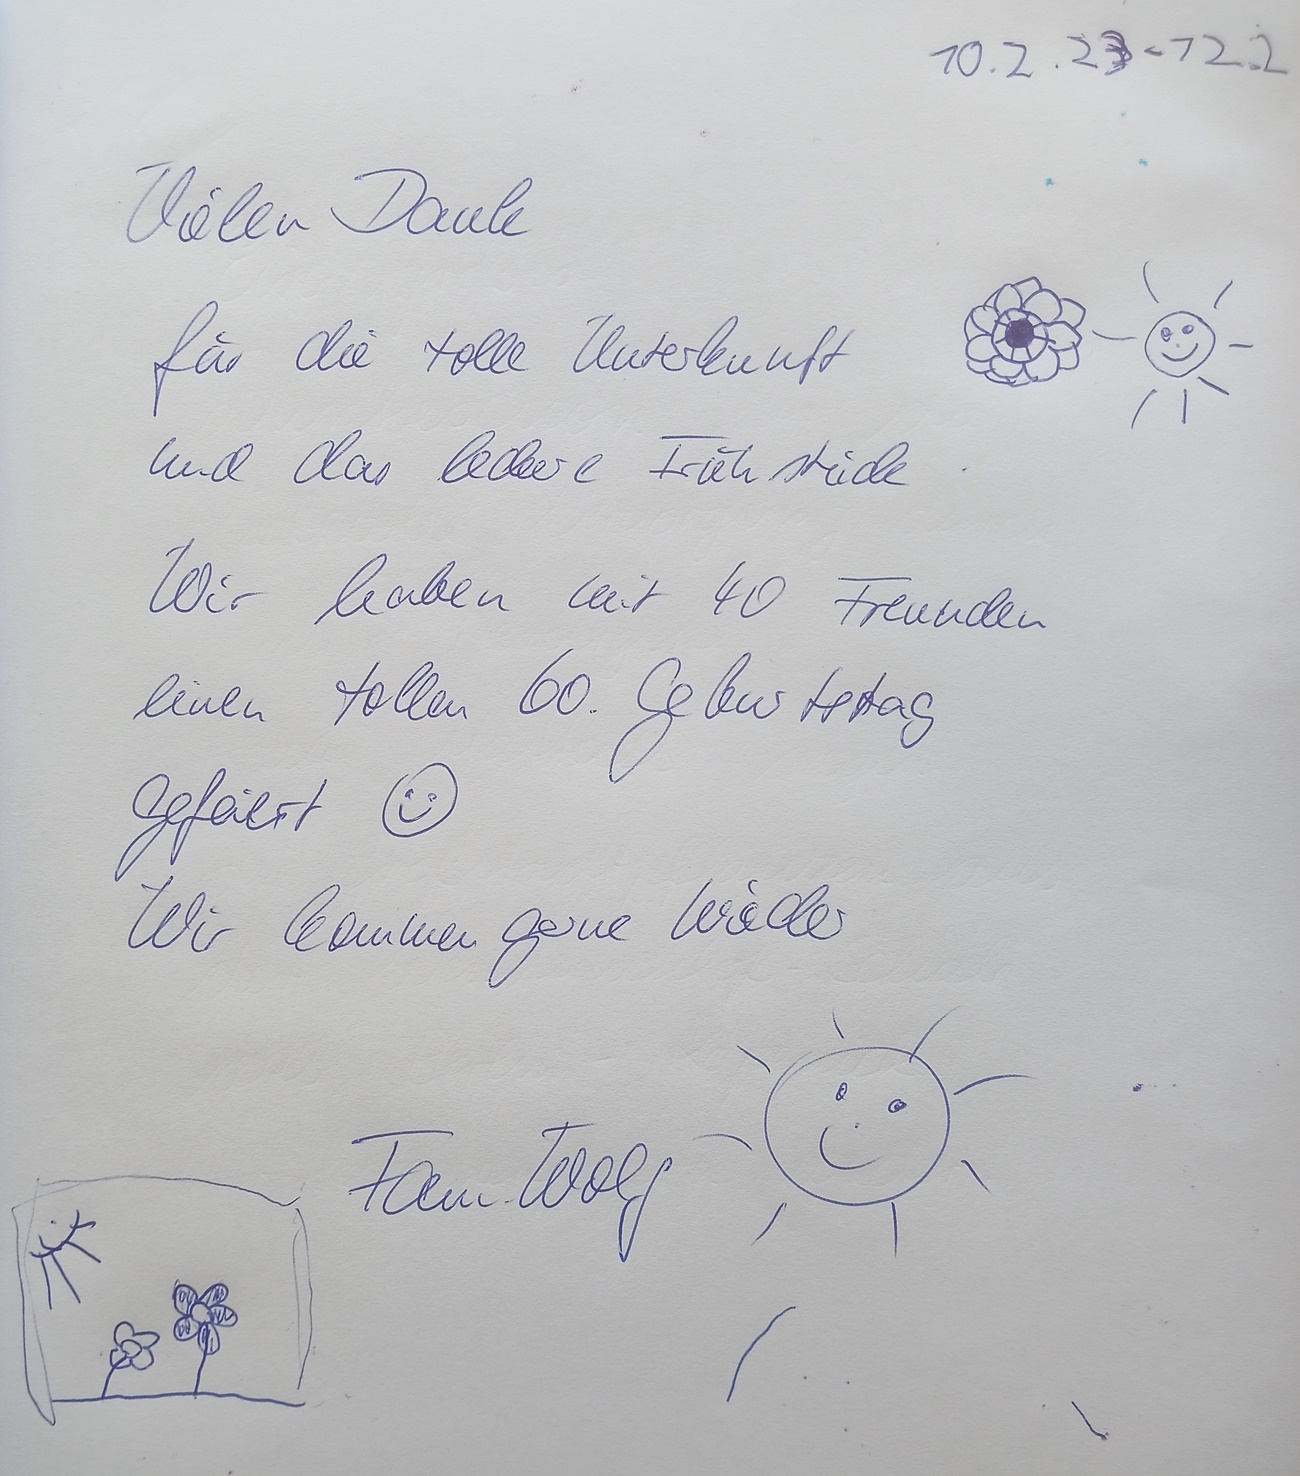 10.2.23-12.2
Vielen Dank
für die tolle Unterkunft
und das leckere Frühstück
Wir haben mit 40 Freunden
einen tollen 60. Geburtstag
gefeiert
Wir kommen gerne wieder
Fam. Wolf